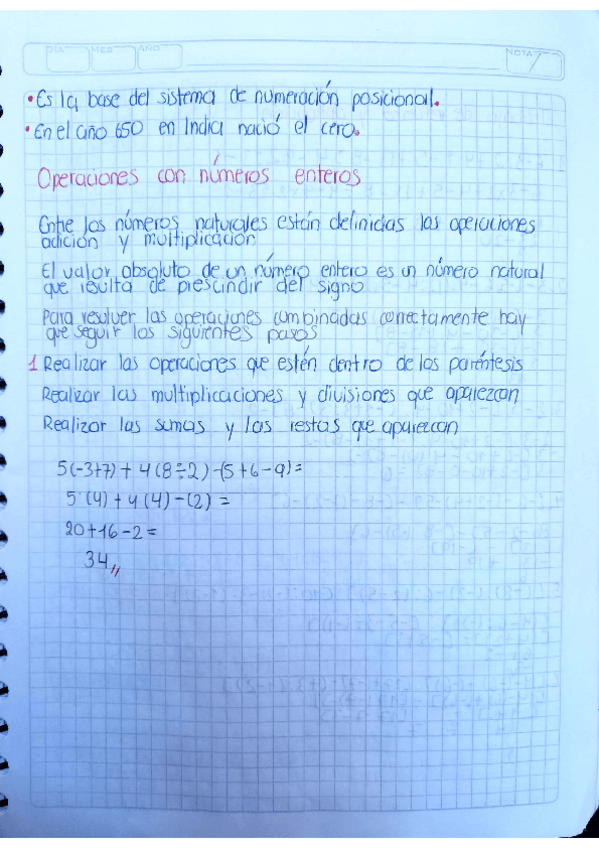 DIA MES AÑO NOTA
• Es la base del sistema de numeración posicional.
• En el año 650 en India nació el cero.
Operaciones con números enteros
Entre los números naturales están definidas las operaciones
adición y multiplicación
El valor absoluto de un número entero es un número natural
que resulta de prescindir del signo
Para resolver las operaciones combinadas correctamente hay
que seguir los siguientes pasos
1 Realizar las operaciones que estén dentro de los paréntesis
Realizar las multiplicaciones y divisiones que aparezcan
Realizar las sumas y las restas que aparezcan
5(-3+7)+4(8÷2)-(5+6-9)=
5(4)+4(4)-(2)=
20+16-2=
34,,